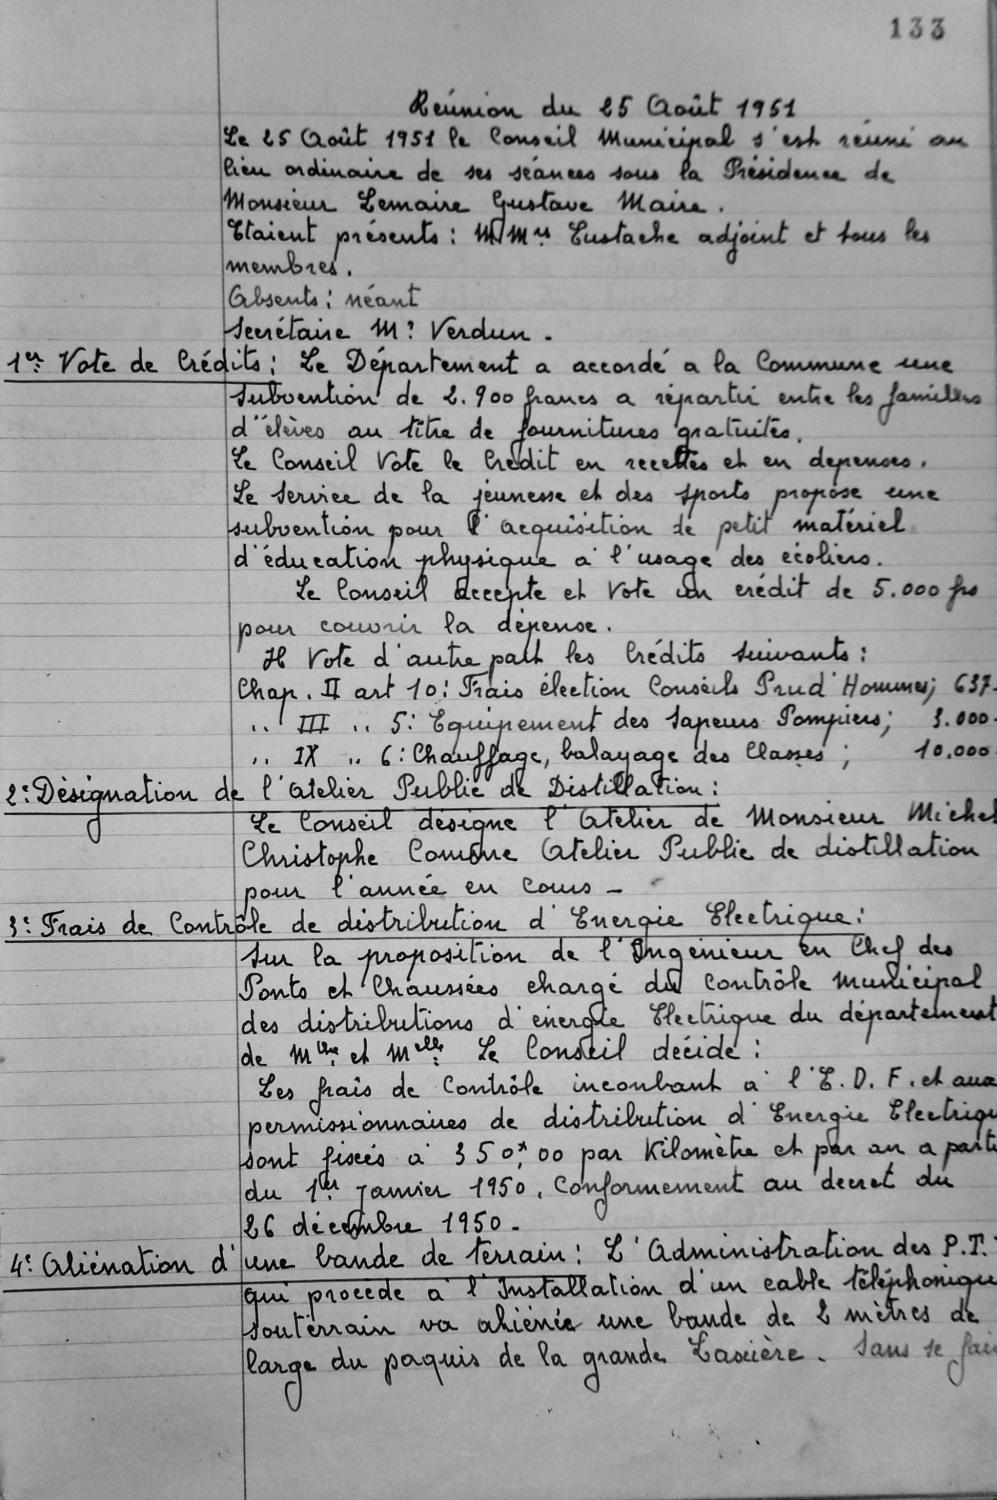 133
Réunion du 25 Août 1951
Le 25 Août 1951 le Conseil Municipal s'est réuni au
lieu ordinaire de ses séances sous la Présidence de
Monsieur Lemaire Gustave Maire.
Etaient présents : MMrs Eustache adjoint et tous les
membres.
Absents : néant
Secrétaire Mr Verdun.
1er Vote de Crédits : Le Département a accordé a la Commune une
subvention de 2.900 francs a répartir entre les familles
d'élèves au titre de fournitures gratuites.
Le Conseil Vote le Crédit en recettes et en depenses.
Le Service de la jeunesse et des sports propose une
subvention pour l'acquisition de petit matériel
d'éducation physique a l'usage des écoliers.
Le Conseil accepte et Vote un crédit de 5.000 frs
pour couvrir la dépense.
Il Vote d'autre part les Crédits suivants :
Chap. II art 10 : Frais élection Conseils Prud'Hommes; 637-
.. III .. 5 : Equipement des Sapeurs Pompiers; 3.000-
.. IX .. 6 : Chauffage, balayage des Classes ; 10.000
2e: Désignation de l'atelier Public de Distillation :
Le Conseil désigne l'Atelier de Monsieur Michel
Christophe Comme Atelier Public de distillation
pour l'année en cours -
3e: Frais de Contrôle de distribution d'Energie Electrique :
Sur la proposition de l'Ingénieur en Chef des
Ponts et Chaussées chargé du contrôle municipal
des distributions d'énergie Electrique du département
de Mthe et Melle Le Conseil décide :
Les frais de Contrôle inconbant a l'E.D.F. et aux
permissionnaires de distribution d'Energie Electriqu
sont fixés a 350,00 par Kilomètre et par an a parti
du 1er Janvier 1950. Conformement au decret du
26 décembre 1950.-
4e: Aliénation d'une bande de terrain : L'Administration des P.T.T
qui procède a l'Installation d'un cable téléphonique
souterrain va aliénée une bande de 2 mètres de
large du paquis de la grande . Sans se fai